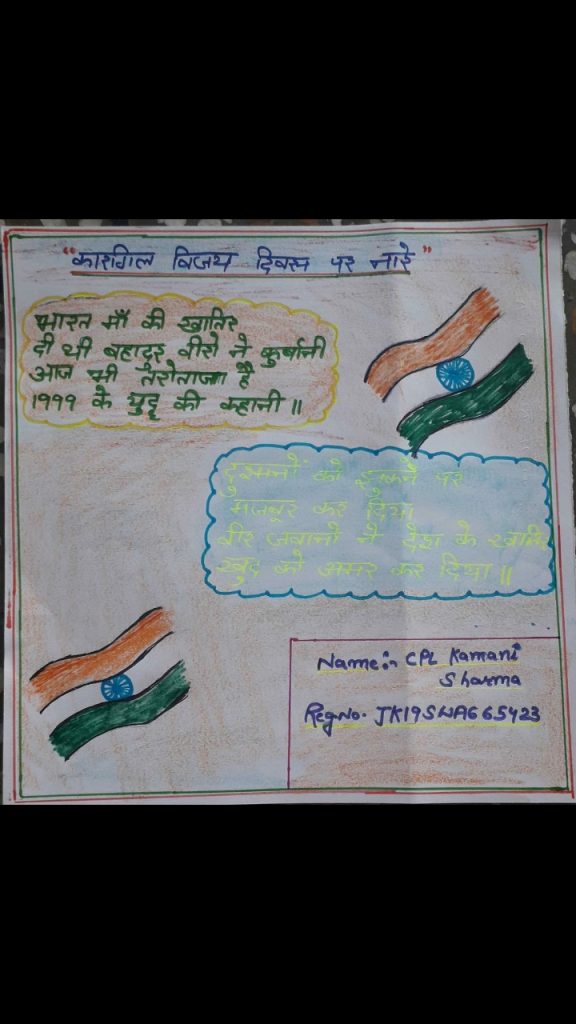 "कारगिल विजय दिवस पर नारे"
भारत माँ की खातिर
दी थी बहादुर वीरो ने कुर्बानी
आज भी तरोताजा है
1999 के युद्ध की कहानी॥
दुश्मनों को झुकने पर
मजबूर कर दिया
वीर जवानो ने देश के खातिर
खुद को अमर कर दिया॥
Name:- CPL Kamani
Sharma
Reg No. JK19SWA665423